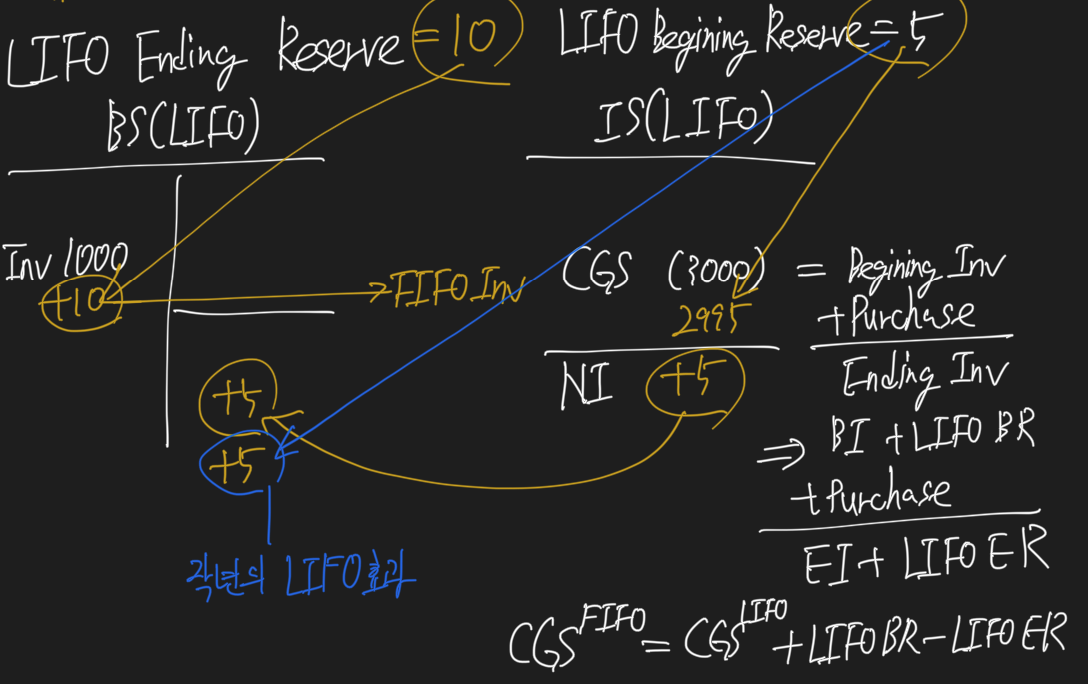 LIFO Ending Reserve = 10
BS(LIFO)
Inv 1000
+10
→ FIFO Inv
+5
+5
LIFO Begining Reserve = 5
IS(LIFO)
CGS (3000)
2995
NI +5
= Begining Inv
+ Purchase
Ending Inv
⇒ BI + LIFO BR
+ Purchase
EI + LIFO ER
LIFO효과
CGS^FIFO = CGS^LIFO + LIFO BR - LIFO ER